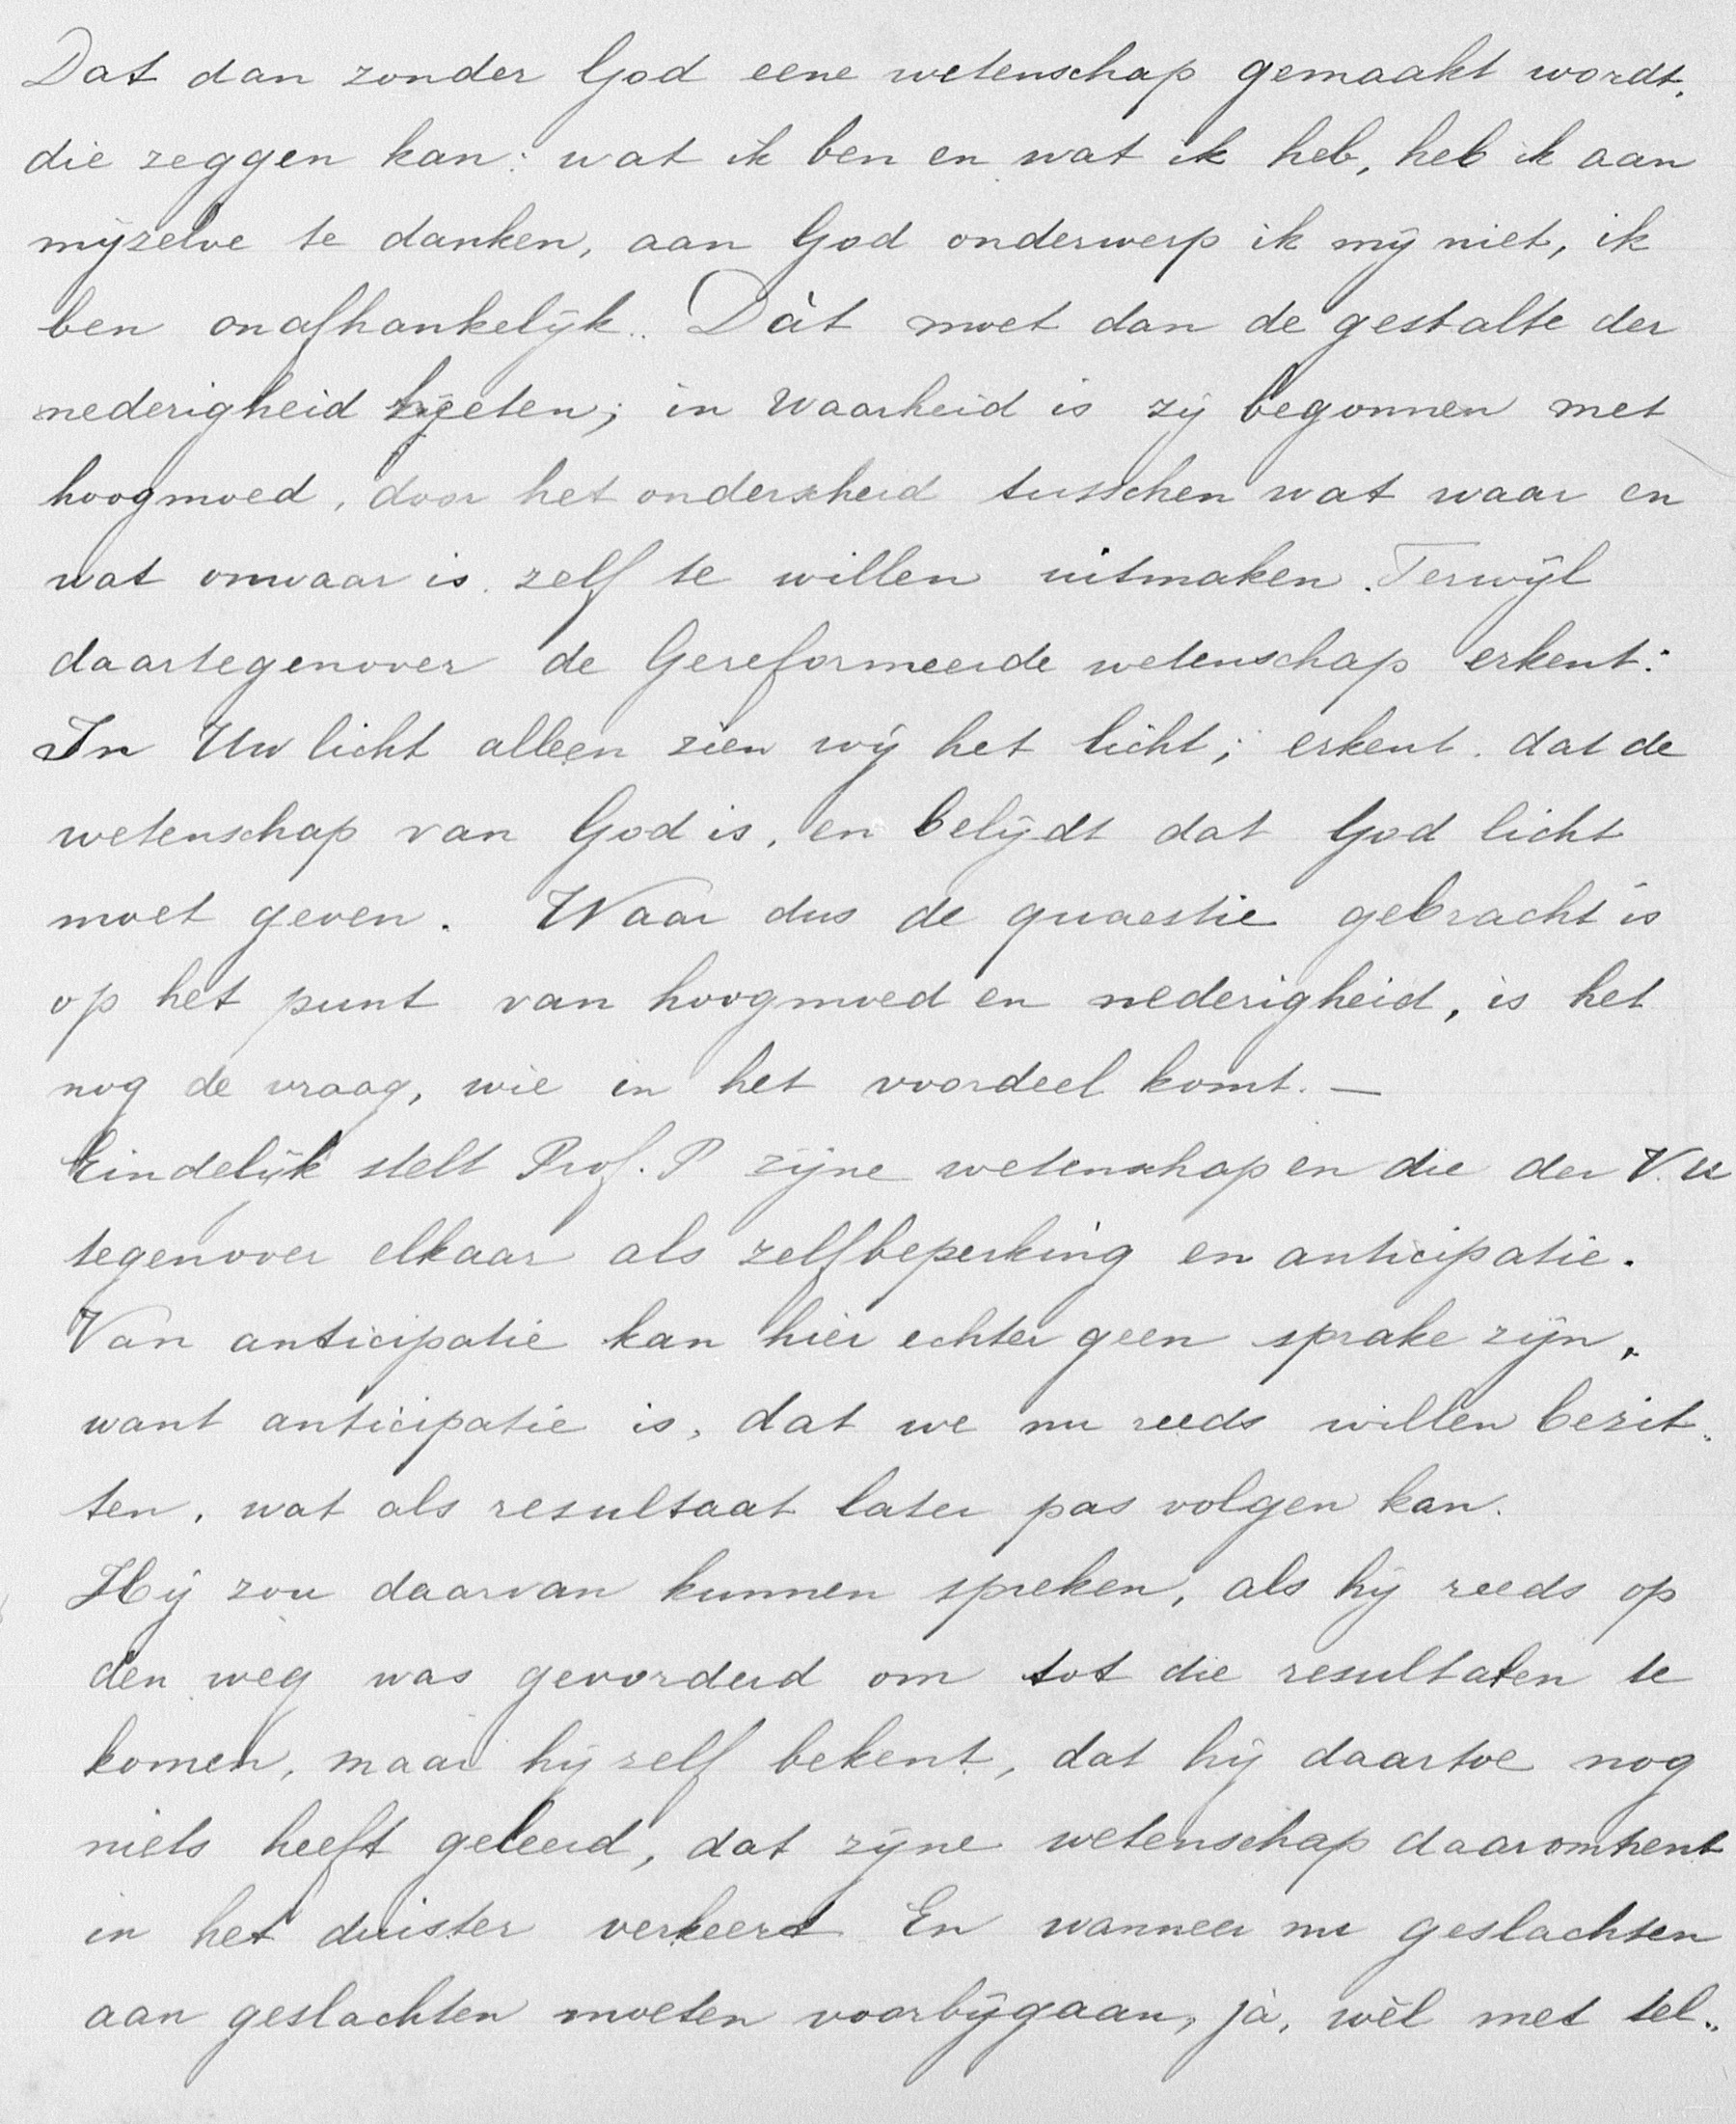 Dat dan zonder God eene wetenschap gemaakt wordt,
die zeggen kan: wat ik ben en wat ik heb, heb ik aan
mijzelve te danken, aan God onderwerp ik mij niet, ik
ben onafhankelijk. Dàt moet dan de gestalte der
nederigheid heeten; in waarheid is zij begonnen met
hoogmoed, door het onderscheid tusschen wat waar en
wat onwaar is zelf te willen uitmaken. Terwijl
daartegenover de Gereformeerde wetenschap erkent:
In Uw licht alleen zien wij het licht; erkent dat de
wetenschap van God is, en belijdt dat God licht
moet geven. Waar dus de quaestie gebracht is
op het punt van hoogmoed en nederigheid, is het
nog de vraag, wie in het voordeel komt. —
Eindelijk stelt Prof. P zijne wetenschap en die der V.U
tegenover elkaar als zelfbeperking en anticipatie.
Van anticipatie kan hier echter geen sprake zijn,
want anticipatie is, dat we nu reeds willen bezit„
ten, wat als resultaat later pas volgen kan.
Hij zou daarvan kunnen spreken, als hij reeds op
den weg was gevorderd om tot die resultaten te
komen, maar hij zelf bekent, dat hij daartoe nog
niets heeft geleerd, dat zijne wetenschap daaromtrent
in het duister verkeert En wanneer nu geslachten
aan geslachten moeten voorbijgaan, jà, wèl met tel„